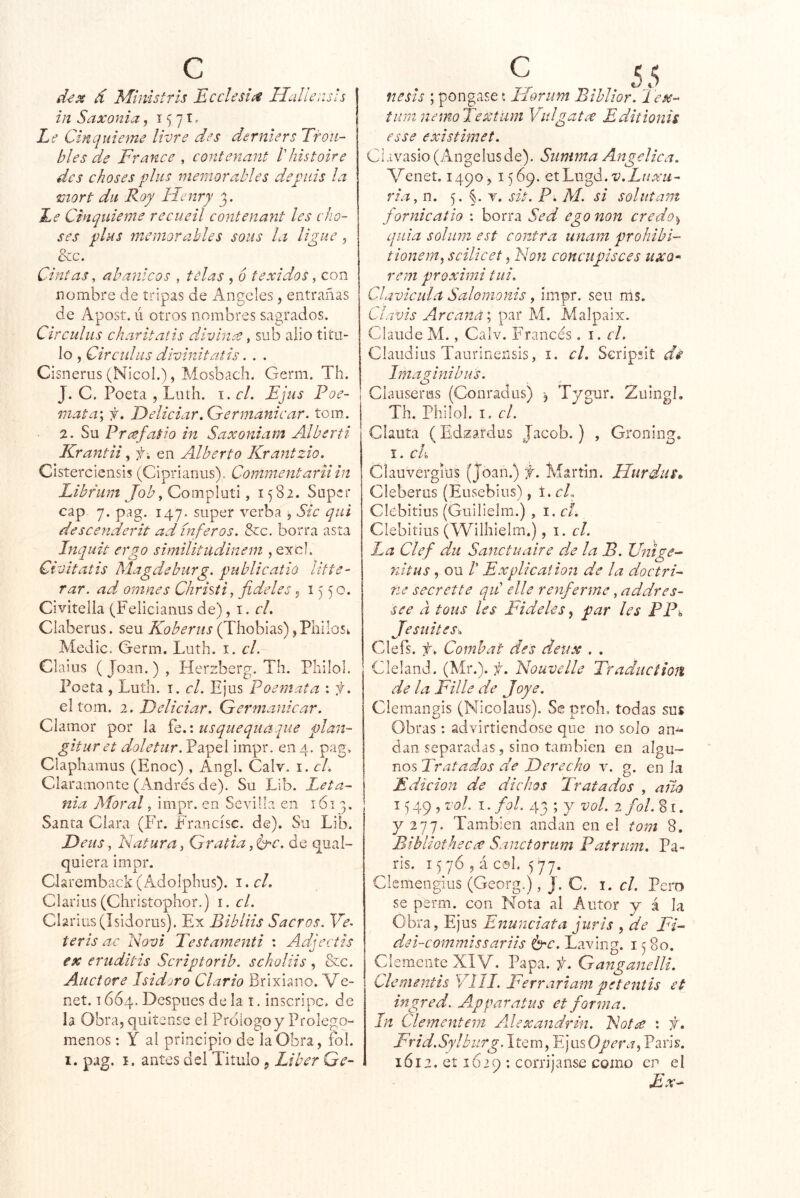 C
dex á Ministris Ecclesiæ Hallensis
in Saxonia, 1571.
Le Cinquieme livre des derniers Trou-
bles de France, contenant l'histoire
des choses plus memorables depuis la
mort du Roy Henry 3.
Le Cinquieme recueil contenant les cho-
ses plus memorables sous la ligue,
&c.
Cintas, abanicos, telas, ó texidos, con
nombre de tripas de Angeles, entrañas
de Apost. ú otros nombres sagrados.
Circulus charitatis divinæ, sub alio titu-
lo, Circulus divinitatis. . .
Cisnerus (Nicol.), Mosbach. Germ. Th.
J. C. Poeta, Luth. 1. cl. Ejus Poe-
mata; ẏ. Deliciar. Germanicar. tom.
2. Su Præfatio in Saxoniam Alberti
Krantii, ẏ. en Alberto Krantzio.
Cisterciensis (Ciprianus). Commentarii in
Librum Job, Compluti, 1582. Super
cap 7. pag. 147. super verba, Sic qui
descenderit ad ínferos. &c. borra asta
Inquit ergo similitudinem, excl.
Civitatis Magdeburg. publicatio litte-
rar. ad omnes Christi, fideles, 1550.
Civitella (Felicianus de), 1. cl.
Claberus. seu Koberus (Thobias), Philos.
Medic. Germ. Luth. 1. cl.
Claius (Joan.), Herzberg. Th. Philol.
Poeta, Luth. 1. cl. Ejus Poemata: ẏ.
el tom. 2. Deliciar. Germanicar.
Clamor por la fe.: usquequaque plan-
gitur et doletur. Papel impr. en 4. pag.
Claphamus (Enoc), Angl. Calv. 1. cl.
Claramonte (Andrés de). Su Lib. Leta-
nia Moral, impr. en Sevilla en 1613.
Santa Clara (Fr. Francisc. de). Su Lib.
Deus, Natura, Gratia, &c. de qual-
quiera impr.
Claremback (Adolphus). 1. cl.
Clarius (Christophor.) 1. cl.
Clarius (Isidorus). Ex Bibliis Sacros. Ve-
teris ac Novi Testamenti: Adjectis
ex eruditis Scriptorib. scholiis, &c.
Auctore Isidoro Clario Brixiano. Ve-
net. 1664. Despues de la 1. inscripc. de
la Obra, quitense el Prólogo y Prolego-
menos: Y al principio de la Obra, fol.
1. pag. 1. antes del Titulo, Liber Ge-
C 55
nesis; pongase: Horum Biblior. Tex-
tum nemo Textum Vulgatæ Editionis
esse existimet.
Clavasio (Angelus de). Summa Angelica.
Venet. 1490, 1569. et Lugd. v. Luxu-
ria, n. 5. §. v. sit. P. M. si solutam
fornicatio: borra Sed ego non credo,
quia solum est contra unam prohibi-
tionem, scilicet, Non concupisces uxo-
rem proximi tui.
Clavicula Salomonis, impr. seu ms.
Clavis Arcana; par M. Malpaix.
Claude M., Calv. Francés. 1. cl.
Claudius Taurinensis, 1. cl. Scripsit de
Imaginibus.
Clauserus (Conradus), Tygur. Zuingl.
Th. Philol. 1. cl.
Clauta (Edzardus Jacob.), Groning.
1. cl.
Clauvergius (Joan.) ẏ. Martin. Hurdus.
Cleberus (Eusebius), 1. cl.
Clebitius (Guilielm.), 1. cl.
Clebitius (Wilhielm.), 1. cl.
La Clef du Sanctuaire de la B. Unige-
nitus, ou l'Explication de la doctri-
ne secrette qu'elle renferme, addres-
see à tous les Fideles, par les PP.
Jesuites.
Clefs. ẏ. Combat des deux . .
Cleland. (Mr.). ẏ. Nouvelle Traduction
de la Fille de Joye.
Clemangis (Nicolaus). Se proh. todas sus
Obras: advirtiendose que no solo an-
dan separadas, sino tambien en algu-
nos Tratados de Derecho v. g. en la
Edicion de dichos Tratados, año
1549, vol. 1. fol. 43; y vol. 2 fol. 81.
y 277. Tambien andan en el tom 8.
Bibliothecæ Sanctorum Patrum. Pa-
ris. 1576, á col. 577.
Clemengius (Georg.), J. C. 1. cl. Pero
se perm. con Nota al Autor y á la
Obra, Ejus Enunciata juris, de Fi-
dei-commissariis &c. Laving. 1580.
Clemente XIV. Papa. ẏ. Ganganelli.
Clementis VIII. Ferrariam petentis et
ingred. Apparatus et forma.
In Clementem Alexandrin. Notæ: ẏ.
Frid. Sylburg. Item, Ejus Opera, Paris.
1612. et 1629: corrijanse como en el
Ex-